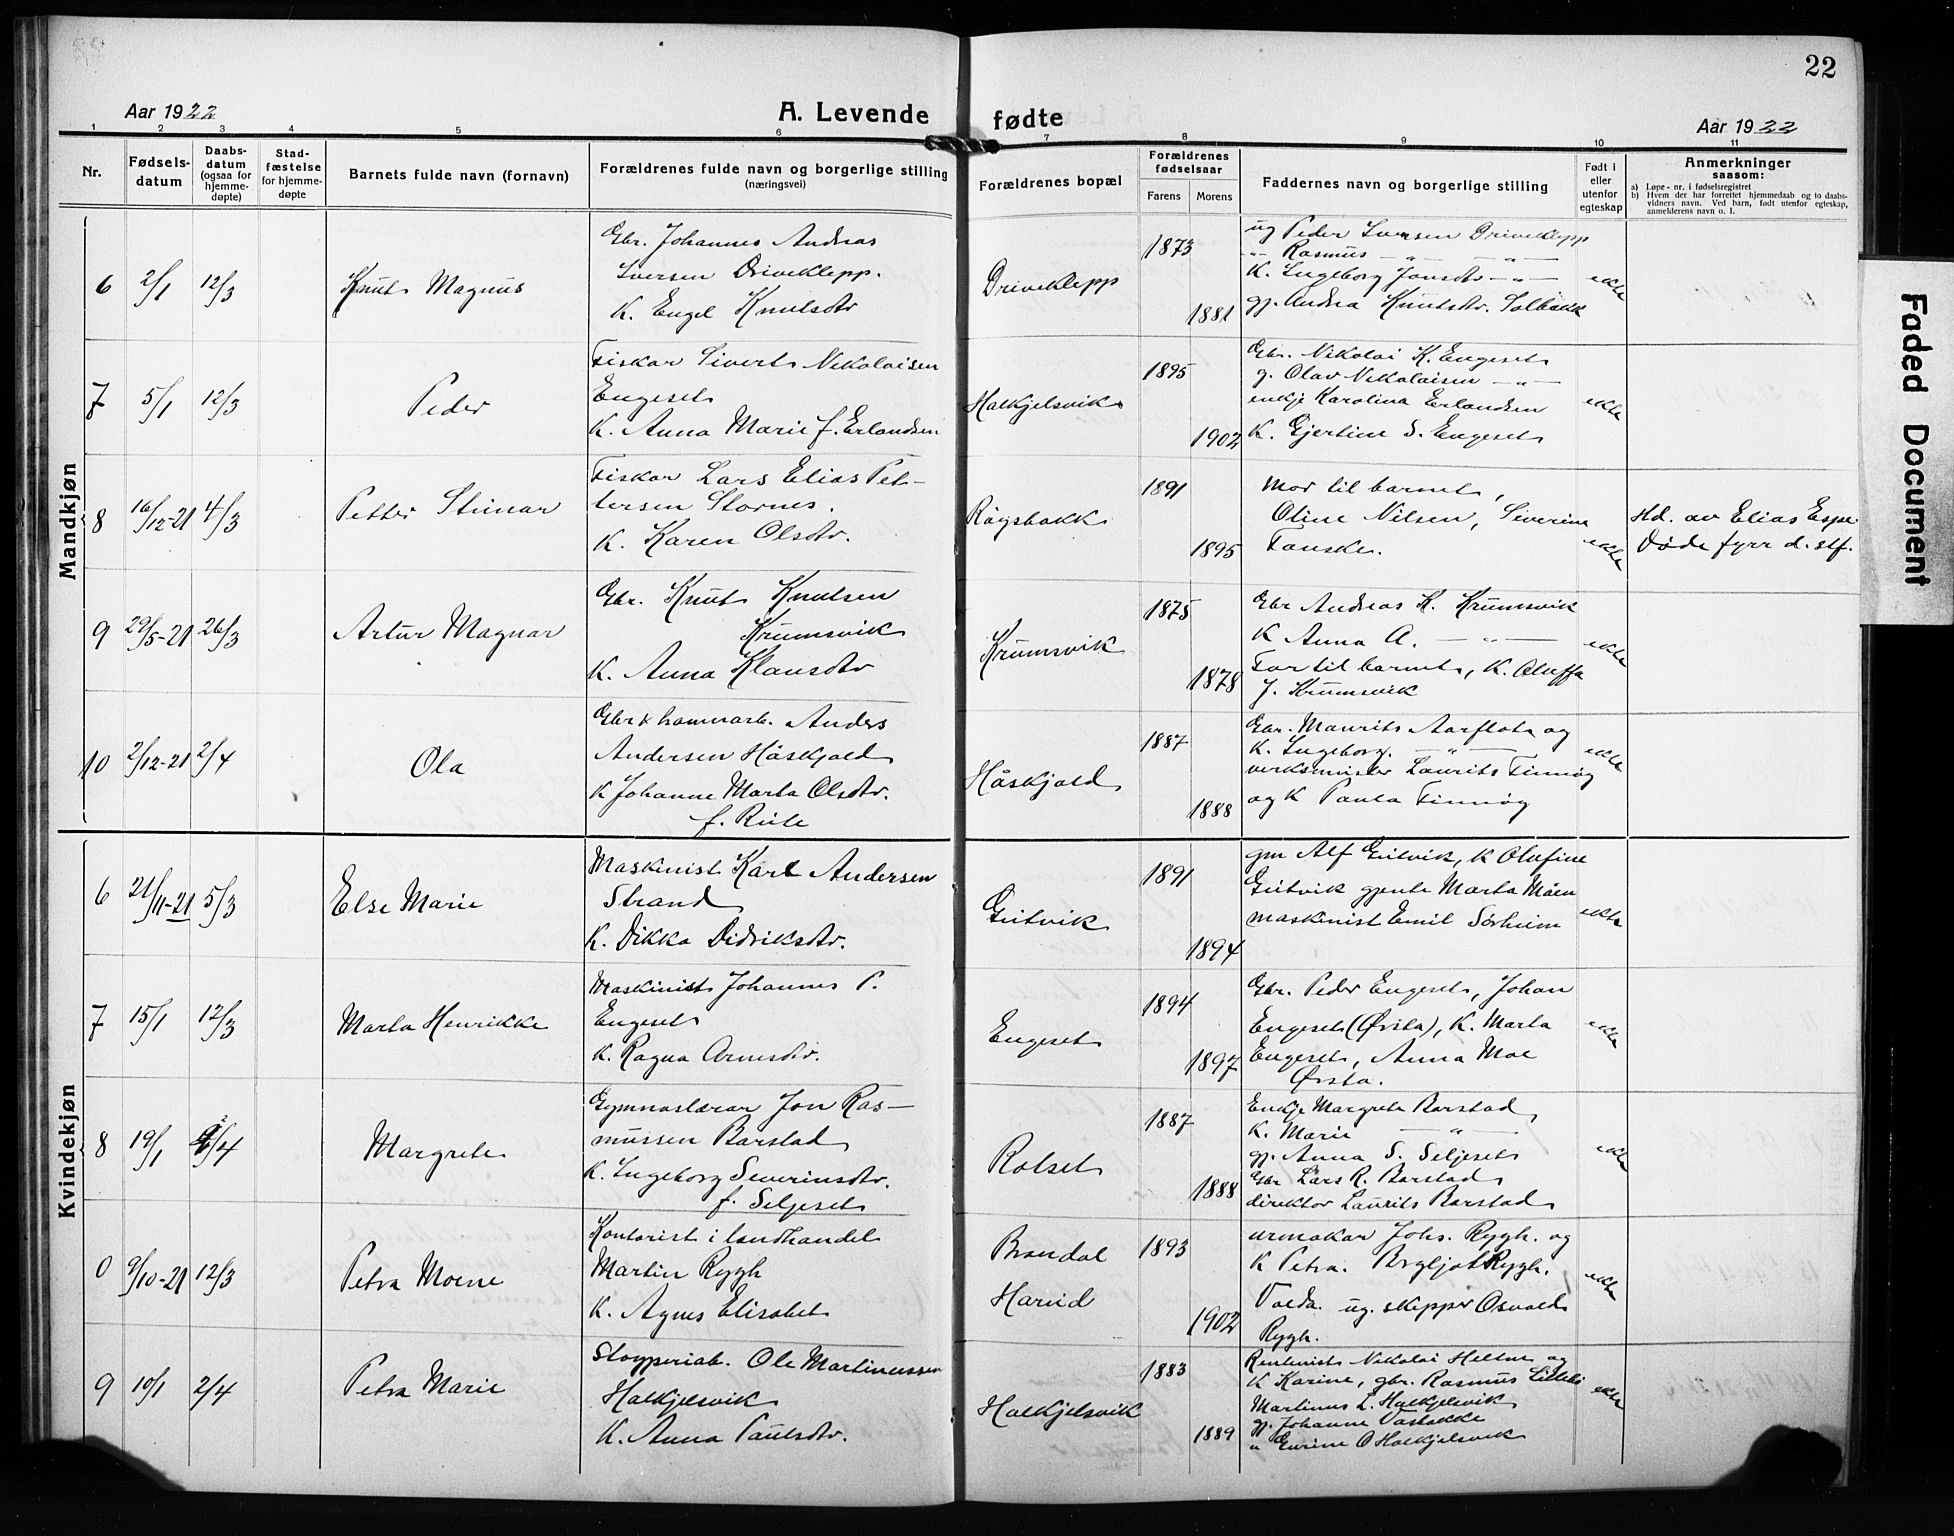 22
Aar 1922
A. Levende
fødte
Aar 1922
1 2 3 4 5 6 7 8 9 10 11
Nr.
Fødsels-
datum
Daabs-
datum
(ogsaa for
hjemme-
døpte)
Stad-
fæstelse
for hjemme-
døpte
Barnets fulde navn (fornavn)
Forældrenes fulde navn og borgerlige stilling
(næringsvei)
Forældrenes bopæl
Forældrenes
fødselsaar
Farens
Morens
Faddernes navn og borgerlige stilling
Født i
eller
utenfor
egteskap
Anmerkninger
saasom:
a) Løpe-nr. i fødselsregistret
b) Hvem der har forrettet hjemmedaab og to daabs-
vidners navn. Ved barn, født utenfor egteskap,
anmelderens navn o. l.
Mandkjøn
6 2/1 12/3 Knut Magnus
Gbr. Johannes Andreas
Iversen Driveklepp.
K. Engel Knutsdtr
Driveklepp
1873
1881
ug Peder Iversen Driveklepp
-"- Rasmus -"- -"-
K. Ingeborg Jonsdtr -"-
gj. Andrea Knutsdtr. Solbakk
ekte
7 5/1 12/3 Peder
Fiskar Sivert Nikolaisen
Engeset
K. Anna Marie f. Erlandsen
Halkjelsvik
1895
1902
Gbr. Nikolai K. Engeset
g. Olav Nikolaisen -"-
enkje Karolina Erlandsen
K. Gjertine S. Engeset
ekte
8 16/12-21 4/3 Petter Steinar
Fiskar Lars Elias Pet-
tersen Stornes.
K. Karen Olsdtr.
Rågsbakk
1891
1895
Mor til barnet,
Oline Nilsen, Severine
Fauske.
ekte
Hd. av Elias Espe
Døde fyrr d. stf.
9 29/5-21 26/3 Artur Magnar
Gbr. Knut Knutsen
Krumsvik
K. Anna Klausdtr
Krumsvik
1875
1878
Gbr Andreas K. Krumsvik
K Anna A. -"-
Far til barnet, K. Oluffa
J. Krumsvik
ekte
10 2/12-21 2/4 Ola
Gbr & hamnarb. Anders
Andersen Håskjold
K Johanne Marta Olsdtr.
f. Rute
Håskjold
1887
1888
Gbr. Maurits Aarflot og
K. Ingeborg. -"-
verksmester Laurits Finnøy
og K Paula Finnøy
ekte
Kvindekjøn
6 21/11-21 5/3 Else Marie
Maskinist Karl Andersen
Strand
K. Dikka Didriksdtr.
Geitvik
1891
1894
gm Alf Geitvik, K Olufine
Geitvik gjente Marta Måen
maskinist Emil Sørheim
ekte
7 15/1 12/3 Marta Henrikke
Maskinist Johannes P.
Engeset
K. Ragna Arnesdtr.
Engeset
1894
1897
Gbr. Peder Engeset, Johan
Engeset (Ørsta), K. Marta
Engeset, Anna Moe
Ørsta.
ekte
8 19/1 2/4 Margrete
Gymnaslærar Jon Ras-
mussen Barstad
K. Ingeborg Severinsdtr.
f. Seljeset
Rotset
1887
1888
Enkje Margrete Barstad
K. Marie -"-
gj. Anna S. Seljeset
Gbr Lars R. Barstad
direktør Laurits Barstad
ekte
0 9/10-21 12/3 Petra Moene
Kontorist i landhandel
Martin Rygh
K. Agnes Elisabet
Brandal
Hareid
1893
1902
urmakar Johs. Rygh. og
K Petra. Bergljot Rygh.
Volda. ug. skipper Osvald
Rygh.
ekte
9 10/1 2/4 Petra Marie
Støyperiarb. Ole Martinussen
Halkjelsvik
K. Anna Paulsdtr.
Halkjelsvik
1883
1889
Rentenist Nikolai Heltne og
K Karine, gbr. Rasmus
Martinus L. Halkjelsvik
gj. Johanne
" Gurine O Halkjelsvik
ekte
Faded Document